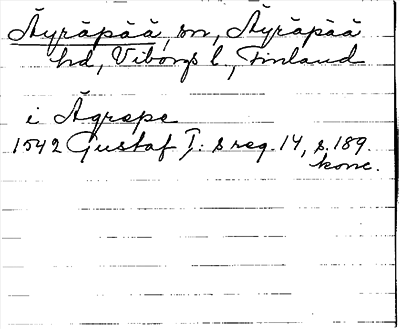 Äyräpää, sn, Äyräpää
hd, Viborgs l., Finland
i Ägrepe
1542 Gustaf I:s reg. 14, s. 189.
konc.